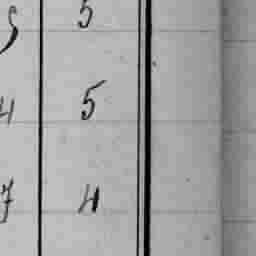 5 5
4 5
7 4